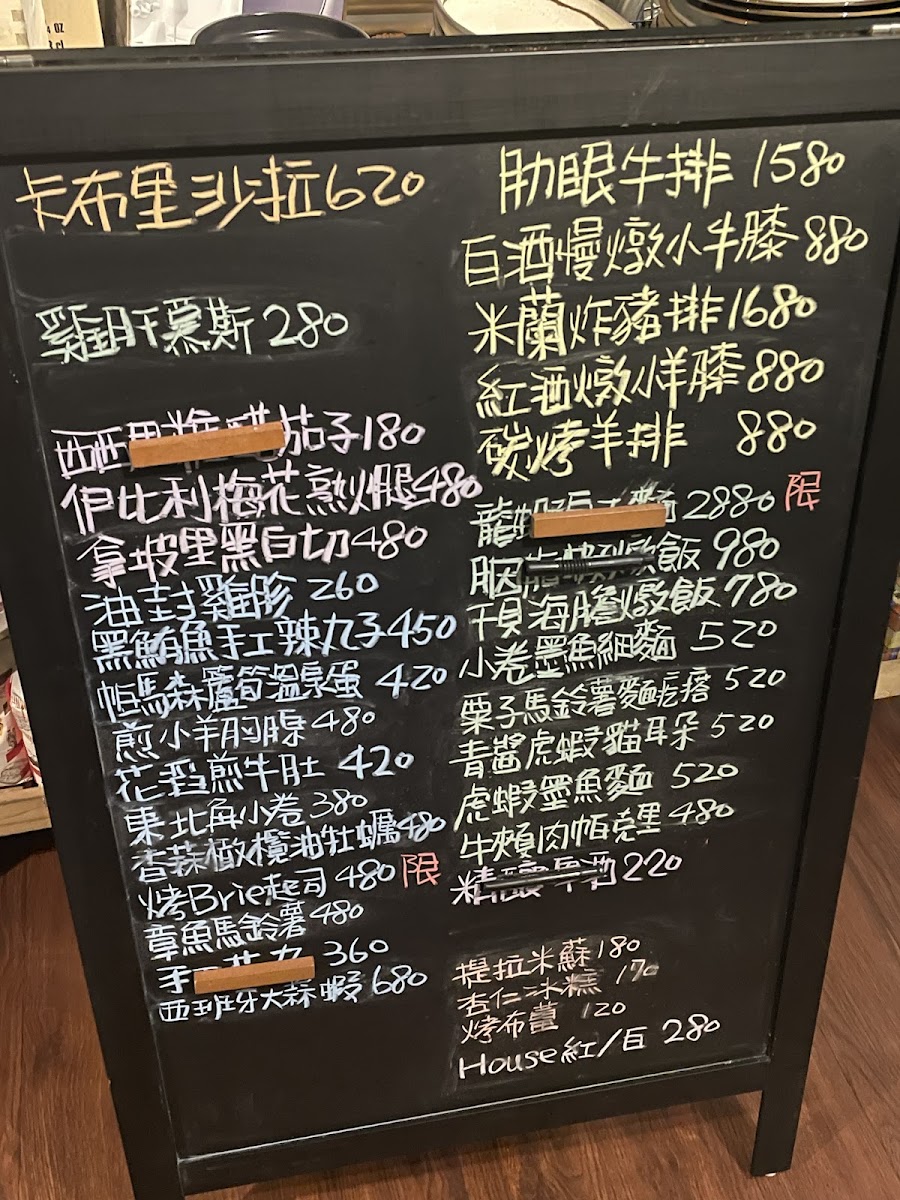 卡布里沙拉620
雞肝慕斯280
茄子180
伊比利梅花熟火腿480
拿坡里黑白切480
油封雞胗 260
黑鮪魚手工辣丸子450
帕馬森蘆筍溫泉蛋 420
煎小羊胸腺 480
花雕煎牛肚 420
東北角小卷 380
香蒜橄欖油牡蠣480
烤Brie起司 480 限
章魚馬鈴薯 480
手 360
西班牙大蒜蝦 680
肋眼牛排 1580
白酒慢燉小牛膝 880
米蘭炸豬排1680
紅酒燉小羊膝 880
碳烤羊排 880
龍蝦 麵 2880 限
胭脂 燉飯 980
干貝海膽燉飯 780
小卷墨魚細麵 520
栗子馬鈴薯麵疙瘩 520
青醬虎蝦貓耳朵 520
虎蝦墨魚麵 520
牛頰肉帕克里 480
精釀啤酒 220
提拉米蘇 180
杏仁冰糕 170
烤布蕾 120
House紅/白 280
4 OZ